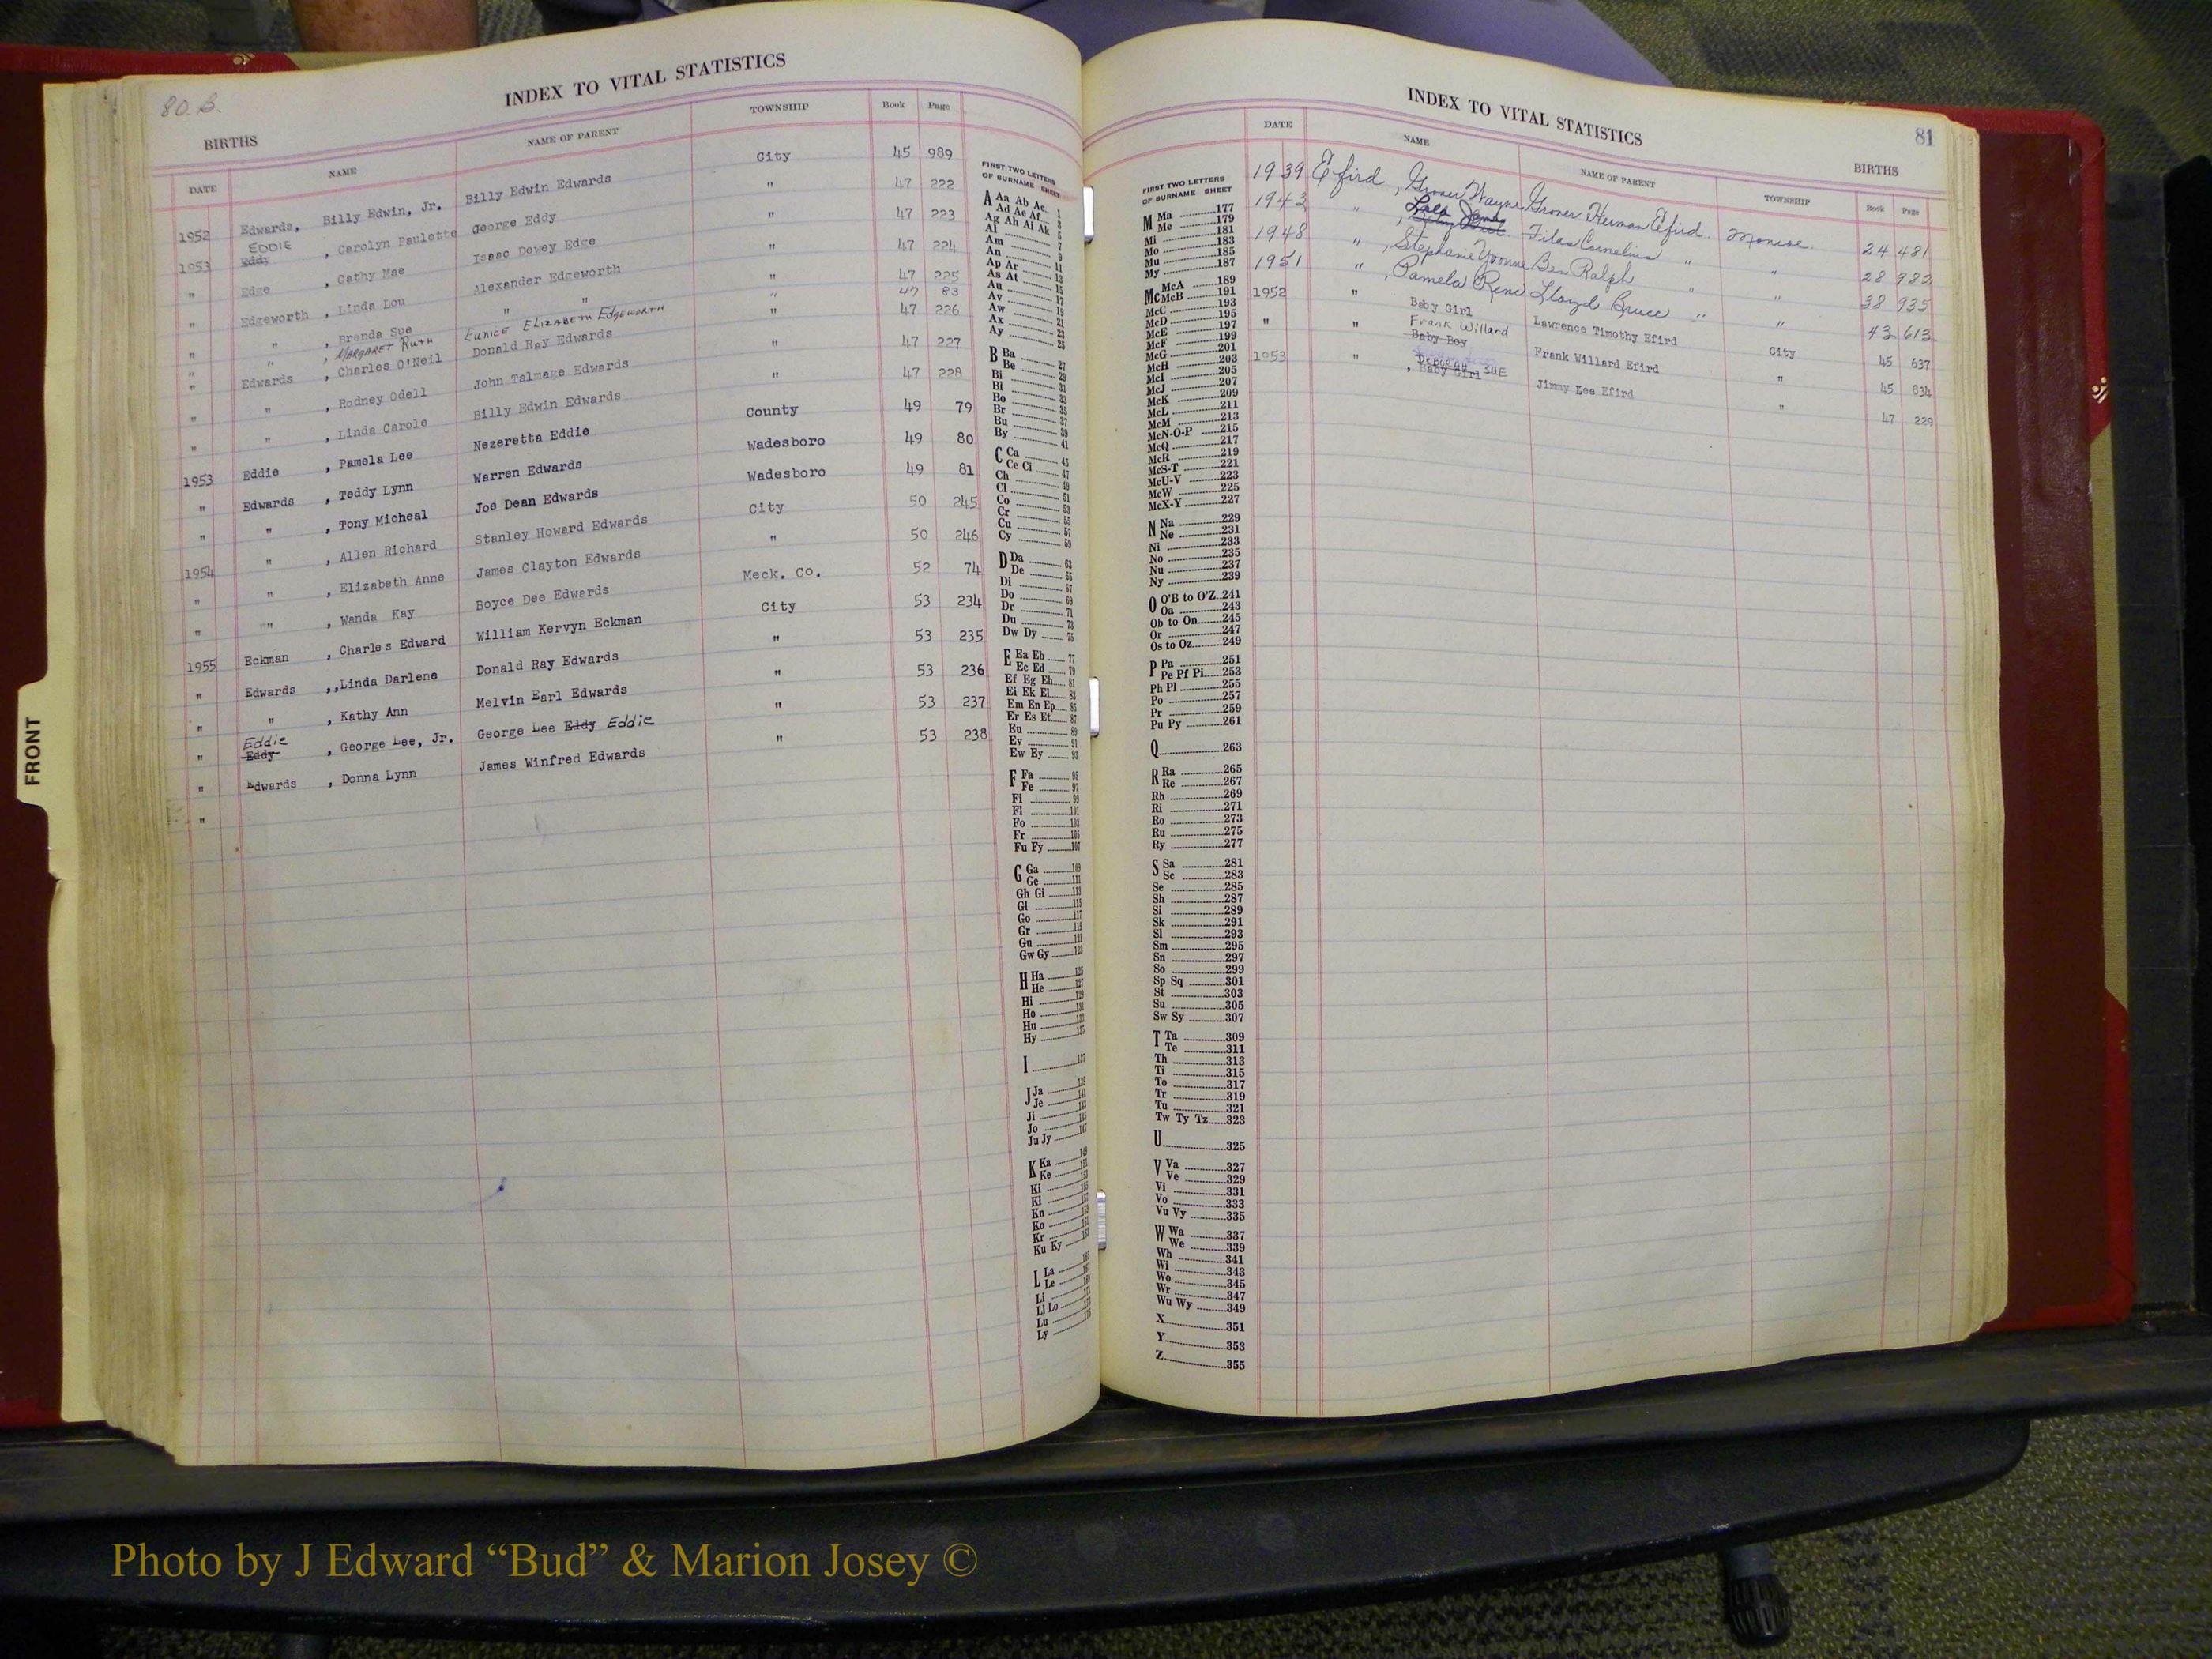 80.B.
INDEX TO VITAL STATISTICS
BIRTHS
DATE NAME NAME OF PARENT TOWNSHIP Book Page
1952 Edwards, Billy Edwin, Jr. Billy Edwin Edwards City 45 989
1953 EDDIE Eddy , Carolyn Paulette George Eddy " 47 222
" Edge , Cathy Mae Isaac Dewey Edge " 47 223
" Edgeworth , Linda Lou Alexander Edgeworth " 47 224
" " , Brenda Sue " " 47 225
" " , MARGARET RUTH EUNICE ELIZABETH EDGEWORTH " 47 83
" Edwards , Charles O'Neil Donald Ray Edwards " 47 226
" " , Rodney Odell John Talmage Edwards " 47 227
" " , Linda Carole Billy Edwin Edwards " 47 228
1953 Eddie , Pamela Lee Nezeretta Eddie County 49 79
" Edwards , Teddy Lynn Warren Edwards Wadesboro 49 80
" " , Tony Micheal Joe Dean Edwards Wadesboro 49 81
1954 " , Allen Richard Stanley Howard Edwards City 50 245
" " , Elizabeth Anne James Clayton Edwards " 50 246
" "" , Wanda Kay Boyce Dee Edwards Meck. Co. 52 74
1955 Eckman , Charles Edward William Kervyn Eckman City 53 234
" Edwards ,,Linda Darlene Donald Ray Edwards " 53 235
" " , Kathy Ann Melvin Earl Edwards " 53 236
" Eddie Eddy , George Lee, Jr. George Lee Eddy Eddie " 53 237
" Edwards , Donna Lynn James Winfred Edwards " 53 238
"
FIRST TWO LETTERS
OF SURNAME SHEET
A Aa Ab Ac 1
Ad Ae Af 3
Ag Ah Ai Ak 5
Al 7
Am 9
An 11
Ap Ar 13
As At 15
Au 17
Av 19
Aw 21
Ax 23
Ay 25
B Ba 27
Be 29
Bi 31
Bl 33
Bo 35
Br 37
Bu 39
By 41
C Ca 45
Ce Ci 47
Ch 49
Cl 51
Co 53
Cr 55
Cu 57
Cy 59
D Da 63
De 65
Di 67
Do 69
Dr 71
Du 73
Dw Dy 75
E Ea Eb 77
Ec Ed 79
Ef Eg Eh 81
Ei Ek El 83
Em En Ep 85
Er Es Et 87
Eu 89
Ev 91
Ew Ey 93
F Fa 95
Fe 97
Fi 99
Fl 101
Fo 103
Fr 105
Fu Fy 107
G Ga 109
Ge 111
Gh Gi 113
Gl 115
Go 117
Gr 119
Gu 121
Gw Gy 123
H Ha 125
He 127
Hi 129
Ho 131
Hu 133
Hy 135
I 137
J Ja 139
Je 141
Ji 143
Jo 145
Ju Jy 147
K Ka 149
Ke 151
Ki
Ki
Kn
Ko
Kr
Ku Ky
L La
Le
Li
Ll Lo
Lu
Ly
INDEX TO VITAL STATISTICS
81
BIRTHS
DATE NAME NAME OF PARENT TOWNSHIP Book Page
1939 Efird, Grover Wayne Grover Herman Efird Monroe. 24 481
1943 " , Filas Cornelius " " 28 982
1948 " , Stephanie Yvonne Ben Ralph " " 38 935
1951 " , Pamela Rene Lloyd Bruce " " 43 613
1952 " Baby Girl Lawrence Timothy Efird City 45 637
" " Frank Willard Baby Boy Frank Willard Efird " 45 834
1953 " , Deborah SUE Baby Girl Jimmy Lee Efird " 47 229
FIRST TWO LETTERS
OF SURNAME SHEET
M Ma 177
Me 179
Mi 181
Mo 183
Mu 185
My 187
Mc McA 189
McB 191
McC 193
McD 195
McE 197
McF 199
McG 201
McH 203
McI 205
McJ 207
McK 209
McL 211
McM 213
McN-O-P 215
McQ 217
McR 219
McS-T 221
McU-V 223
McW 225
McX-Y 227
N Na 229
Ne 231
Ni 233
No 235
Nu 237
Ny 239
O O'B to O'Z 241
Oa 243
Ob to On 245
Or 247
Os to Oz 249
P Pa 251
Pe Pf Pi 253
Ph Pl 255
Po 257
Pr 259
Pu Py 261
Q 263
R Ra 265
Re 267
Rh 269
Ri 271
Ro 273
Ru 275
Ry 277
S Sa 281
Sc 283
Se 285
Sh 287
Si 289
Sk 291
Sl 293
Sm 295
Sn 297
So 299
Sp Sq 301
St 303
Su 305
Sw Sy 307
T Ta 309
Te 311
Th 313
Ti 315
To 317
Tr 319
Tu 321
Tw Ty Tz 323
U 325
V Va 327
Ve 329
Vi 331
Vo 333
Vu Vy 335
W Wa 337
We 339
Wh 341
Wi 343
Wo 345
Wr 347
Wu Wy 349
X 351
Y 353
Z 355
FRONT
Photo by J Edward “Bud” & Marion Josey ©